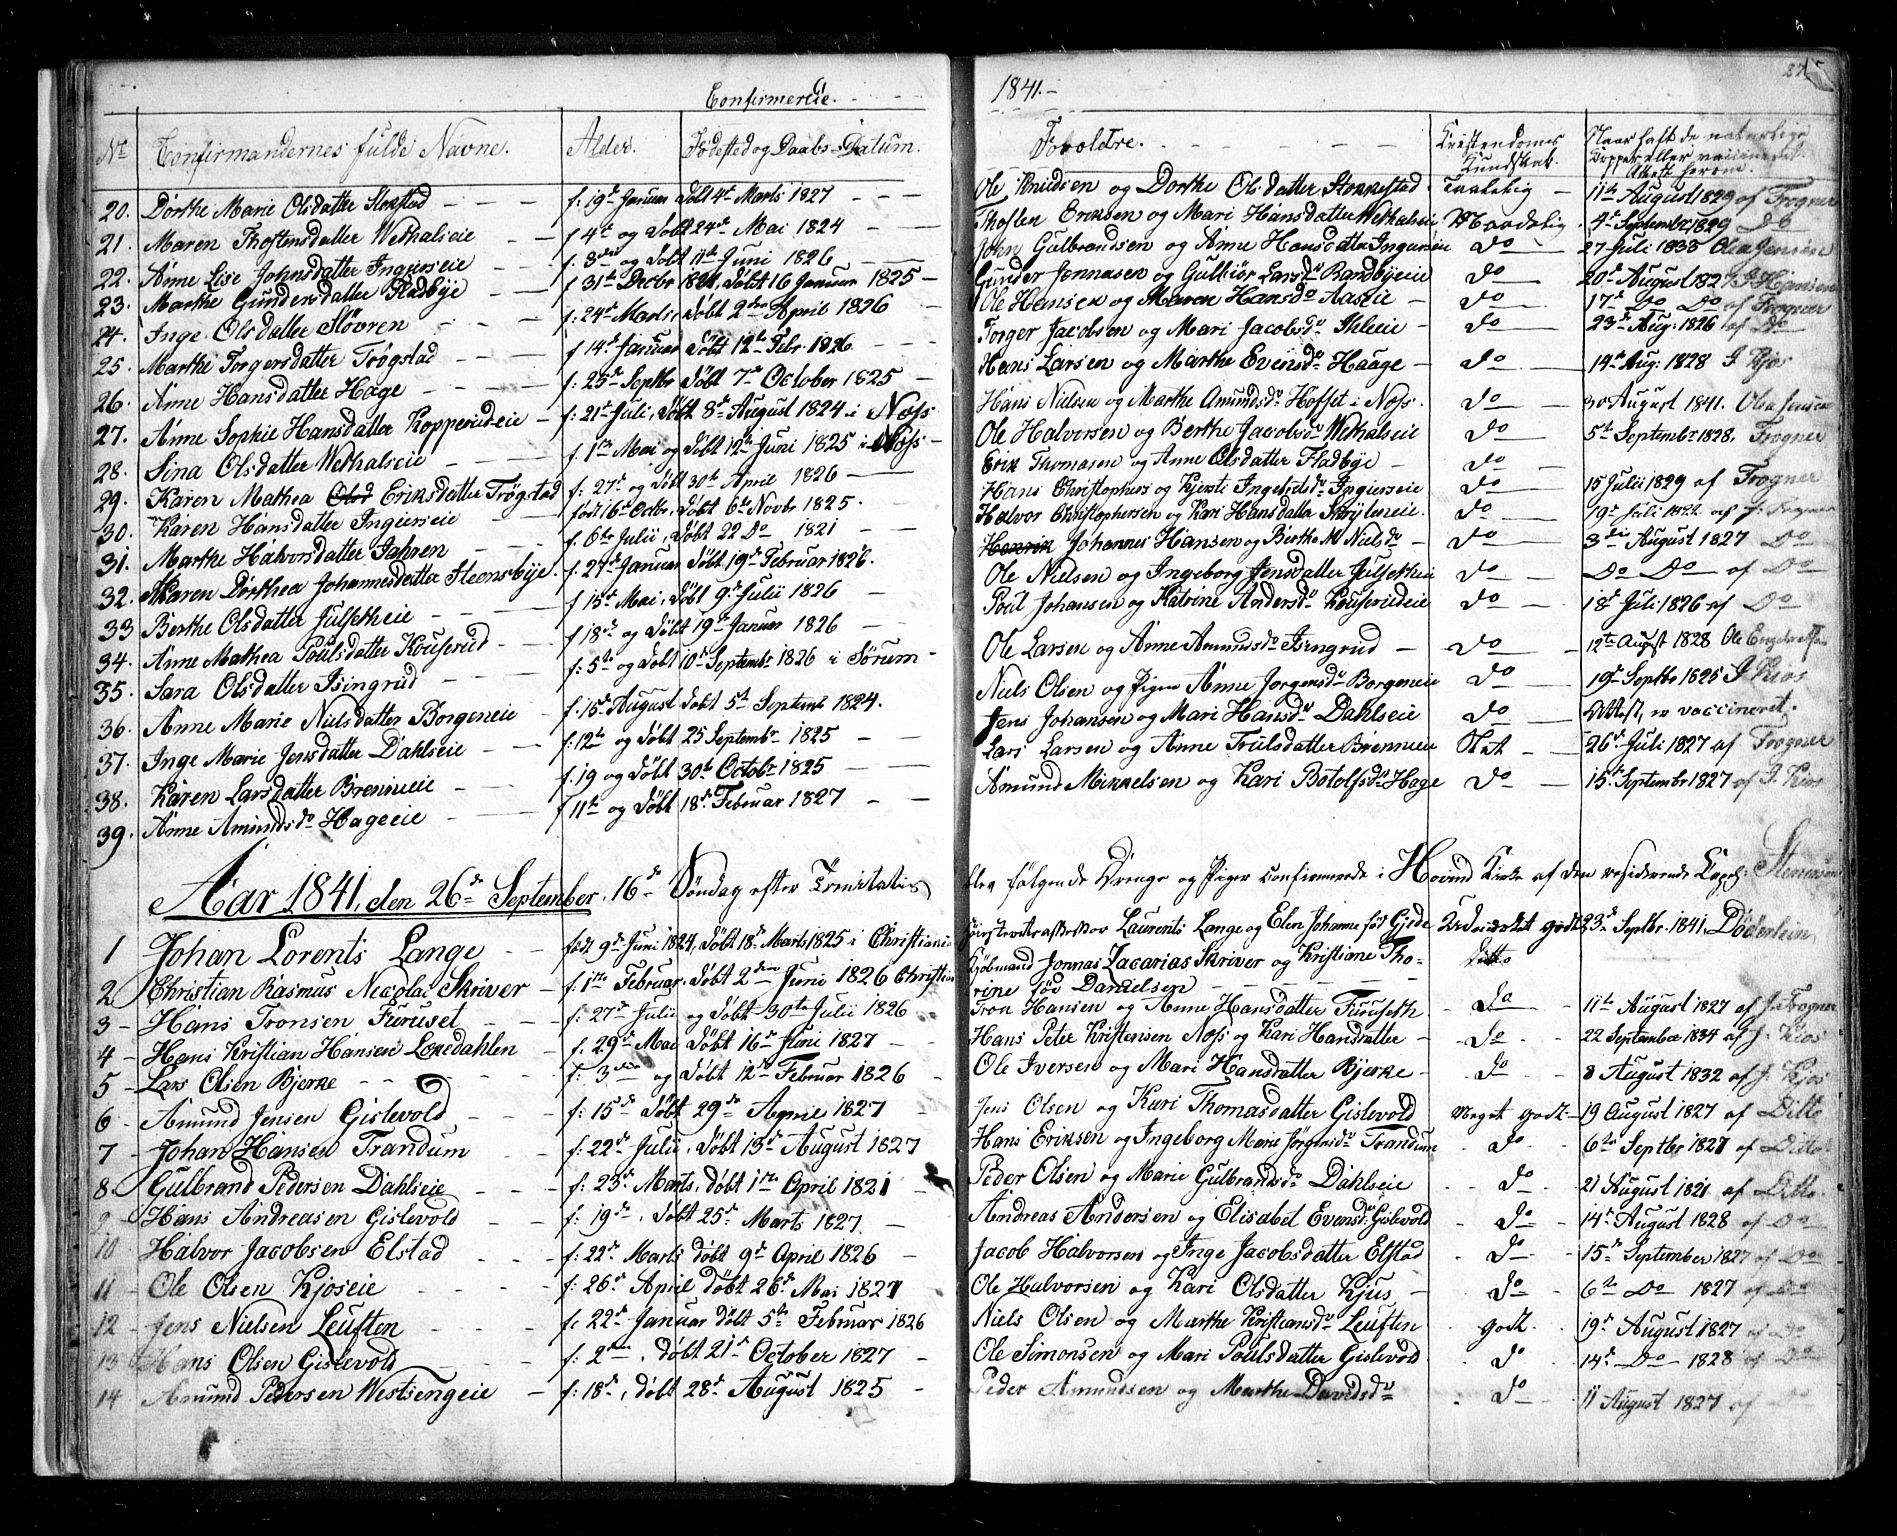 Confirmerede.
No Confirmandernes fulde Navne. Alder. Fødested og Daabs-Datum.
20. Dorthe Marie Olsdatter Stokstad f: 19de Januar Døbt 4de Marts 1827
21. Maren Thostensdatter Wethalseie f 4de og Døbt 24de Mai 1824
22. Anne Lise Johnsdatter Ingierseie f. 3die og Døbt 11te Juni 1826
23. Marthe Gundersdatter Fladbye f 31te Decbr 1824, Døbt 16 Januar 1825
24. Inge Olsdatter Støvren f: 24de Marts Døbt 2den April 1826
25. Marthe Torgersdatter Trøgstad f 14de Januar Døbt 12te Febr. 1826
26. Anne Hansdatter Hage f: 25de Septbr Døbt 7de October 1825
27. Anne Sophie Hansdatter Kopperud-eie f: 21de Juli, Døbt 8de August 1824 i Næs
28. Sina Olsdatter Wethalseie f. 1te Mai og Døbt 12te Juni 1825 i Næs
29. Karen Mathea Olsd Eriksdatter Trøgstad f: 27de og Døbt 30te April 1826
30. Karen Hansdatter Ingierseie født 16de Octbr, Døbt 6te Novbr 1825.
31. Marthe Halvorsdatter Jahren f. 6te Julii, Døbt 22 Do 1821
32. Maren Dorthea Johannesdatter Steensbye. f. 27de Januar Døbt 19de Februar 1826.
33 Berthe Olsdatter Julsetheie f 15de Mai, Døbt 9de Julii 1826
34. Anne Mathea Poulsdatter Kouserud f 18de og Døbt 19de Januar 1826
35. Sara Olsdatter Isingrud f: 5te og Døbt 10de Septembr 1826 i Sørum
36. Anne Marie Nielsdatter Borgeneie f: 15de August Døbt 5te Septemb 1824.
37. Inge Marie Jensdatter Dahlseie f: 12te og Døbt 25 Septembr 1825
38. Karen Larsdatter Brennieie f. 19 og Døbt 30te Octobr 1825
39. Anne Amundsdr Hageeie f 11te og Døbt 18de Februar 1827
Aar 1841, den 26de September, 16de Søndag efter Trinitatis
1 Johan Lorents Lange født 9de Juni 1824, Døbt 18de Marts 1825 i Christiania
2 Christian Rasmus Necolai Skriver f. 1ste Februar, Døbt 2den Juni 1826 Christian
3 Hans Tronsen Furuset f: 27de Julii og Døbt 30te Julii 1826
4 Hans Kristian Hansen Loredahlen f. 29de Mai Døbt 16de Juni 1827
5 Lars Olsen Bjerke f: 3die og Døbt 12te Februar 1826
6 Amund Jensen Gislevold f: 15de Døbt 29de April 1827
7 Johan Hansen Trandum f: 22de Julii, Døbt 19de August 1827
8. Gulbrand Pedersen Dahlseie f: 23de Marts, døbt 1ste April 1821
9 Hans Andreasen Gislevold f: 19de, Døbt 25de Marts 1827.
10 Halvor Jacobsen Elstad f: 22de Marts døbt 9de April 1826
11 Ole Olsen Kjoseie f: 26de April døbt 26de Mai 1821
12 Jens Nielsen Leuften f. 22de Januar døbt 5te Februar 1826
13 Hans Olsen Gislevold f: 2den, døbt 21de October 1827
14 Amund Pedersen Westsengeie f: 18de, døbt 28de August 1825
1841.
Foreldre. Kristendoms Kundskab. Naar haft de naturlige Kopper eller vaccineret. Attest herom.
Ole Knudsen og Dorthe Olsdatter Stokkestad Taalelig 11te August 1829 af Frogner
Thosten Eriksen og Mari Hansdatter Wethalseie Maadelig 4de September 1829 Do
John Gulbrandsen og Anne Hansdatter Ingierseie Do 27 Juli 1838 Ole Jensen
Gunder Jonnasen og Gulbiør Larsdr Bandbyeie Do 20de August 1827 Hansen
Ole Hansen og Maren Hansdr Aaseie Do 17de Do Do af Frogner
Torger Jacobsen og Mari Jacobsdr Ihleie Do 23de Aug. 1826 af Do
Hans Larsen og Marthe Evensdr Haage Do 14de Aug: 1828 J Kjos
Hans Nielsen og Marthe Amundsdr Hofset i Næs. Do 30 August 1841. Ole Jensen
Ole Halvorsen og Berthe Jacobsdr Wethalseie Do 5te Septembr 1828, Frogner
Erik Thomasen og Anne Olsdatter Fladbye Do
Hans Christophers og Kjersti Ingebretsdr Ingierseie Do 15 Julii 1829 af Frogner
Halvor Christophersen og Kari Hansdatter Do 19de Juli 1822 af J. Frogner
Henrik Johannes Hansen og Berthe M Nielsdr Do 3die August 1827 Do
Ole Nielsen og Ingeborg Jensdatter Julsetheie Do Do Do af Do
Poul Johansen og Katrine Andersdr Kouserudeie Do 18de Juli 1826 af Do
Ole Larsen og Anne Amundsdr Isingrud Do 12te August 1828 Ole Engebretsen
Niels Olsen og Pigen Anne Jorgensdr Borgeneie Do 19de Septbr 1825 J Kios
Jens Johansen og Mari Hansdr Dahlseie Do Attest, er vaccineret.
Lars Larsen og Anne Trulsdatter Brenneie Slet 26de Juli 1827 af Frogner
Amund Mikkelsen og Kari Botolfsdr Hage Do 15de Septembr 1827 af J. Kios
blev følgende Drenge og Piger confirmerede i Hovind Kirke af den residerende Capel: Stenersen
Laurents Lange og Elen Johanne fød Gjede Udmærket godt 23de Septbr. 1841, Döderlein
Kjøbmand Jonnas Zacarias Skriver og Kristiane Tho- Ditto
rine fød Danielsen
Tron Hansen og Anne Hansdatter Furuseth Do 11te August 1827 af J. Frogner
Hans Peter Kristensen Næss og Kari Hansdatter Do 22 September 1834 af J. Kios
Ole Iversen og Mari Hansdatter Bjerke Do 8 August 1832 af J. Kjos
Jens Olsen og Kari Thomasdatter Gislevold Meget godt 19 August 1827 af Ditto
Hans Eriksen og Ingeborg Marie Jørgensdr Trandum Do 6te Septbr 1827 af Ditto
Peder Olsen og Marie Gulbrandsdr Dahlseie Do 21 August 1821 af Ditto
Andreas Andersen og Elisabet Evensdr Gislevold Do 14de August 1828 af Do
Jacob Halvorsen og Inge Jacobsdatter Elstad Do 15de September 1827 af Do
Ole Halvorsen og Kari Olsdatter Kjus Do 6te Do 1827 af Do
Niels Olsen og Marthe Kristiansdr Leuften godt 19de August 1827 af Do
Ole Simonsen og Mari Poulsdatter Gislevold Do 14de Do 1828 af Do
Peder Amundsen og Marthe Davidsdr Do 11 August 1827 af Do